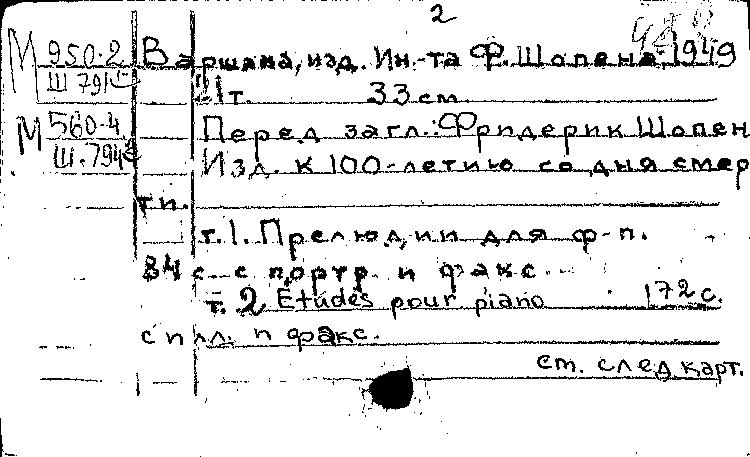 2
М 950-2 Варшава, изд. Ин-та Ф. Шопена, 1949
Ш 791 21 т. 33 см.
М 560-4 Перед загл.: Фридерик Шопен
Ш. 794 Изд. к 100-летию со дня смер
ти.
т. 1. Прелюдии для ф-п.
84 с. с портр. и факс.
т. 2 Etudes pour piano 172 с.
с илл. и факс.
см. след. карт.